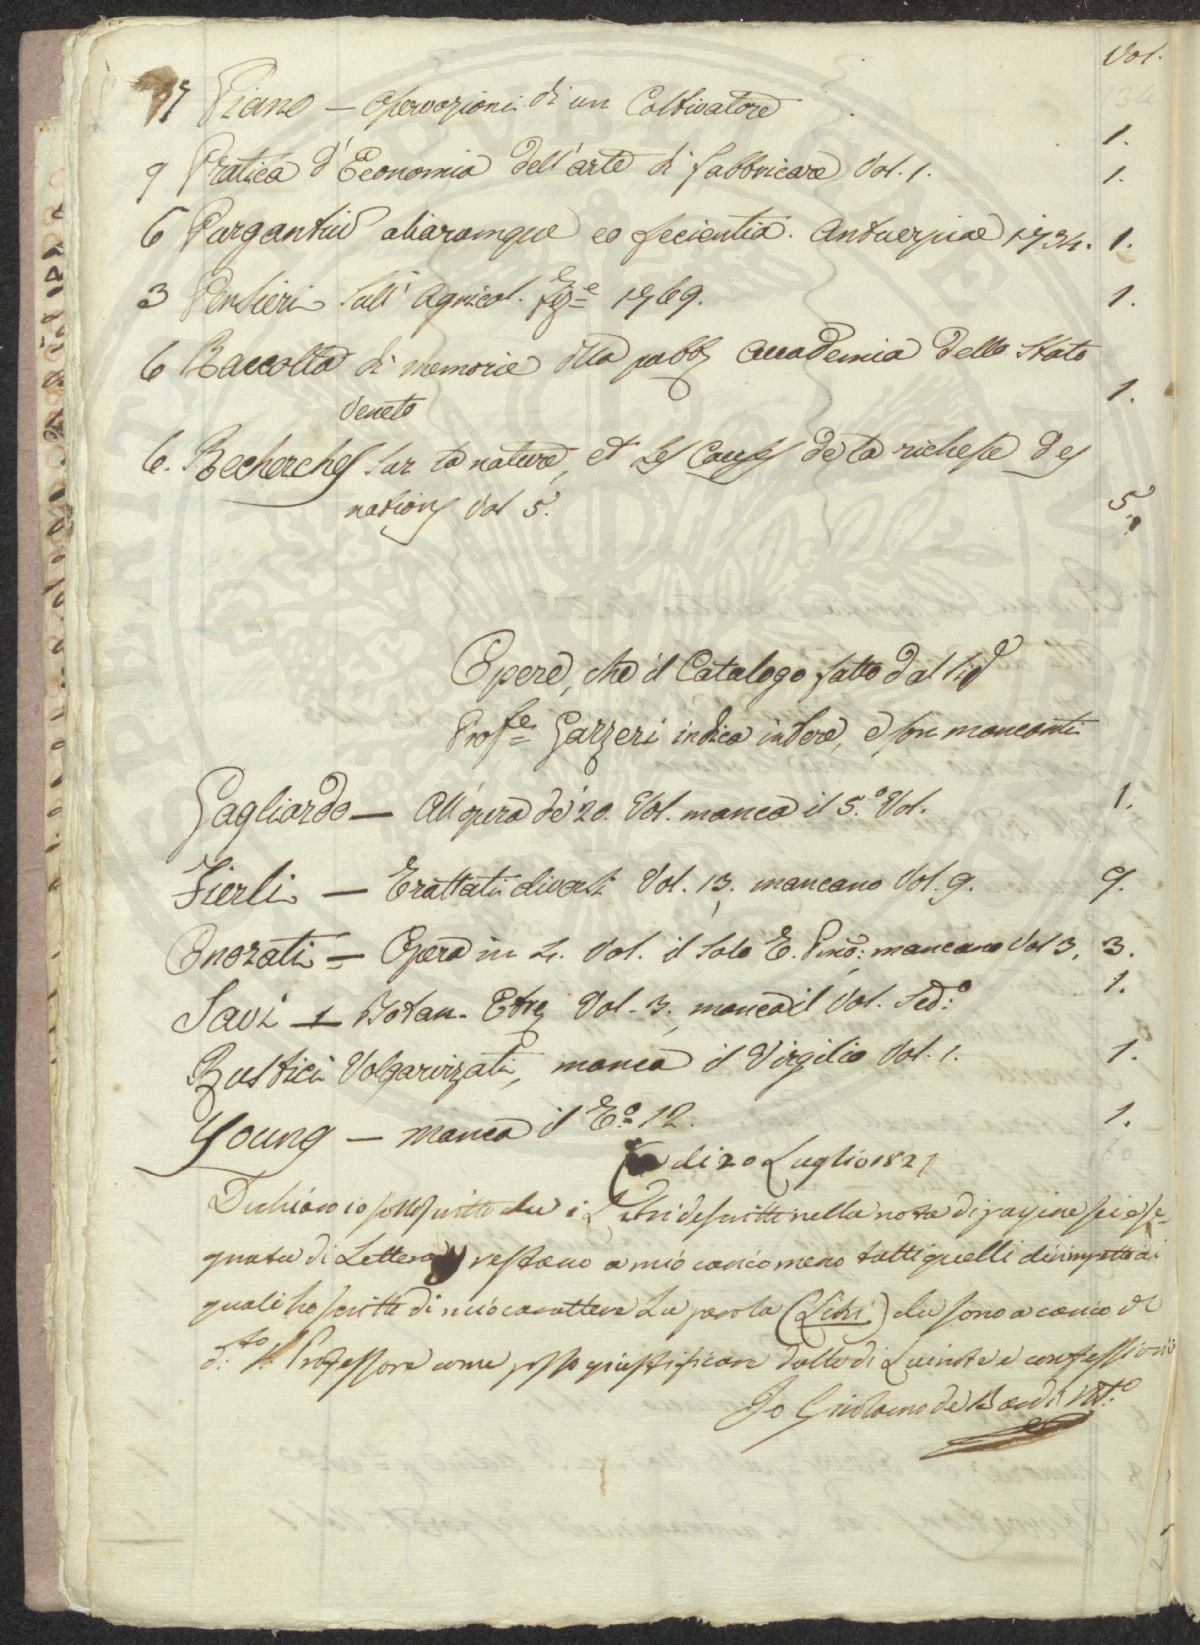 Vol.
Piano — Osservazioni di un Coltivatore 1.
9 Pratica d'Economia dell'arte di fabbricare Vol. 1. 1.
6 Purgantiu aliarumque eo facientia. Antuerpiae 1734. 1.
3 Pensieri sull' Agricol. Fze 1769. 1.
6 Raccolta di memorie della pubb. Accademia dello Stato
Veneto 1.
6. Recherches sur la nature, et les Causes de la richesse des
nations Vol 5. 5.
Opere, che il Catalogo fatto dal Sig
Profe Gazzeri indica intere, e son mancanti
Gagliardo — All'opera de' 20. Vol. manca il 5.o Vol. 1.
Fierli — Trattati diversi Vol. 13, mancano Vol. 9. 9.
Onorati = Opera in 4. Vol. il solo T. Pmo: mancano Vol 3. 3.
Savi — Botan. Etrus Vol. 3. manca il Vol. Sedo 1.
Rustici Volgarizzati, manca il Virgilio Vol. 1. 1.
Young — manca il To 12. 1.
di 20 Luglio 1827
Dichiaro io sottoscritto che i Libri descritti nella nota di pagine sei e se-
gnata di Lettera restano a mio carico meno tutti quelli dirimpetto ai
quali ho scritto di mio carattere La parola (Libri) che sono a carico di
d:to Professore come posso giustificare dalle di Lui note e confessioni
Io Girolamo de Bardi